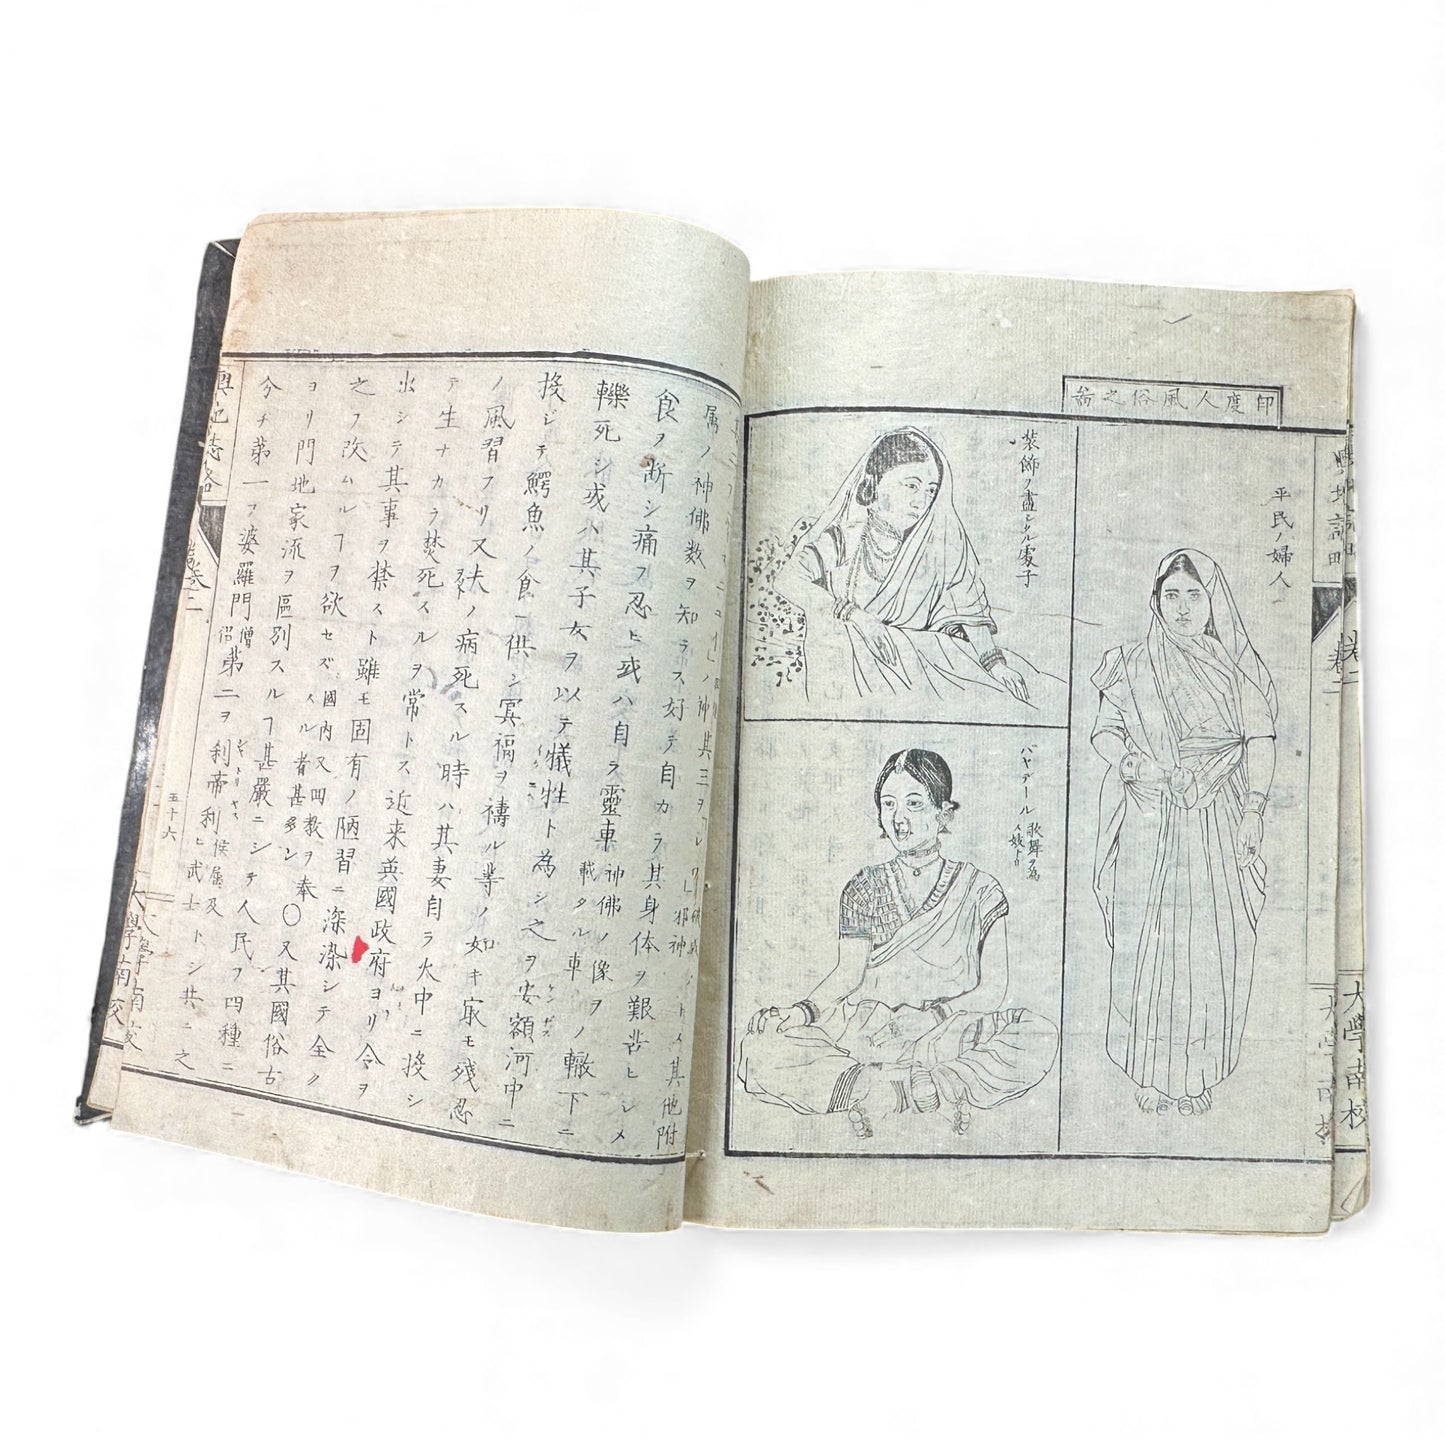 印度人風俗之啚
平民ノ婦人
装飾ヲ盡シタル處子
バヤデール 歌舞ヲ為ス妓ナリ
輿地誌略
卷二
大學南校
属ノ神佛数ヲ知ラス好テ自カラ其身体ヲ艱苦ヒシメ
食ヲ断シ痛ヲ忍ヒ或ハ自ラ靈車 神佛ノ像ヲ載タル車 ノ轍下ニ
轢死シ或ハ其子女ヲ以テ犠牲ト為シ之ヲ安額河中ニ
投シテ鰐魚ノ食ニ供シ冥福ヲ禱ル等ノ如キ㝡モ殘忍
ノ風習アリ又夫ノ病死スル時ハ其妻自ラ火中ニ投シ
テ生ナカラ焚死スルヲ常トス近来英國政府ヨリ令ヲ
出シテ其事ヲ禁スト雖モ固有ノ陋習ニ深染シテ全ク
之ヲ改ムルヿヲ欲セズ 國内又回教ヲ奉スル者甚多シ ○又其國俗古
ヨリ門地家流ヲ區別スルヿ甚嚴ニシテ人民ヲ四種ニ
分チ第一ヲ婆羅門 僧侶 第二ヲ利帝利 侯属及ヒ武士 トシ共ニ之
輿地誌略
卷二
五十六
大學南校